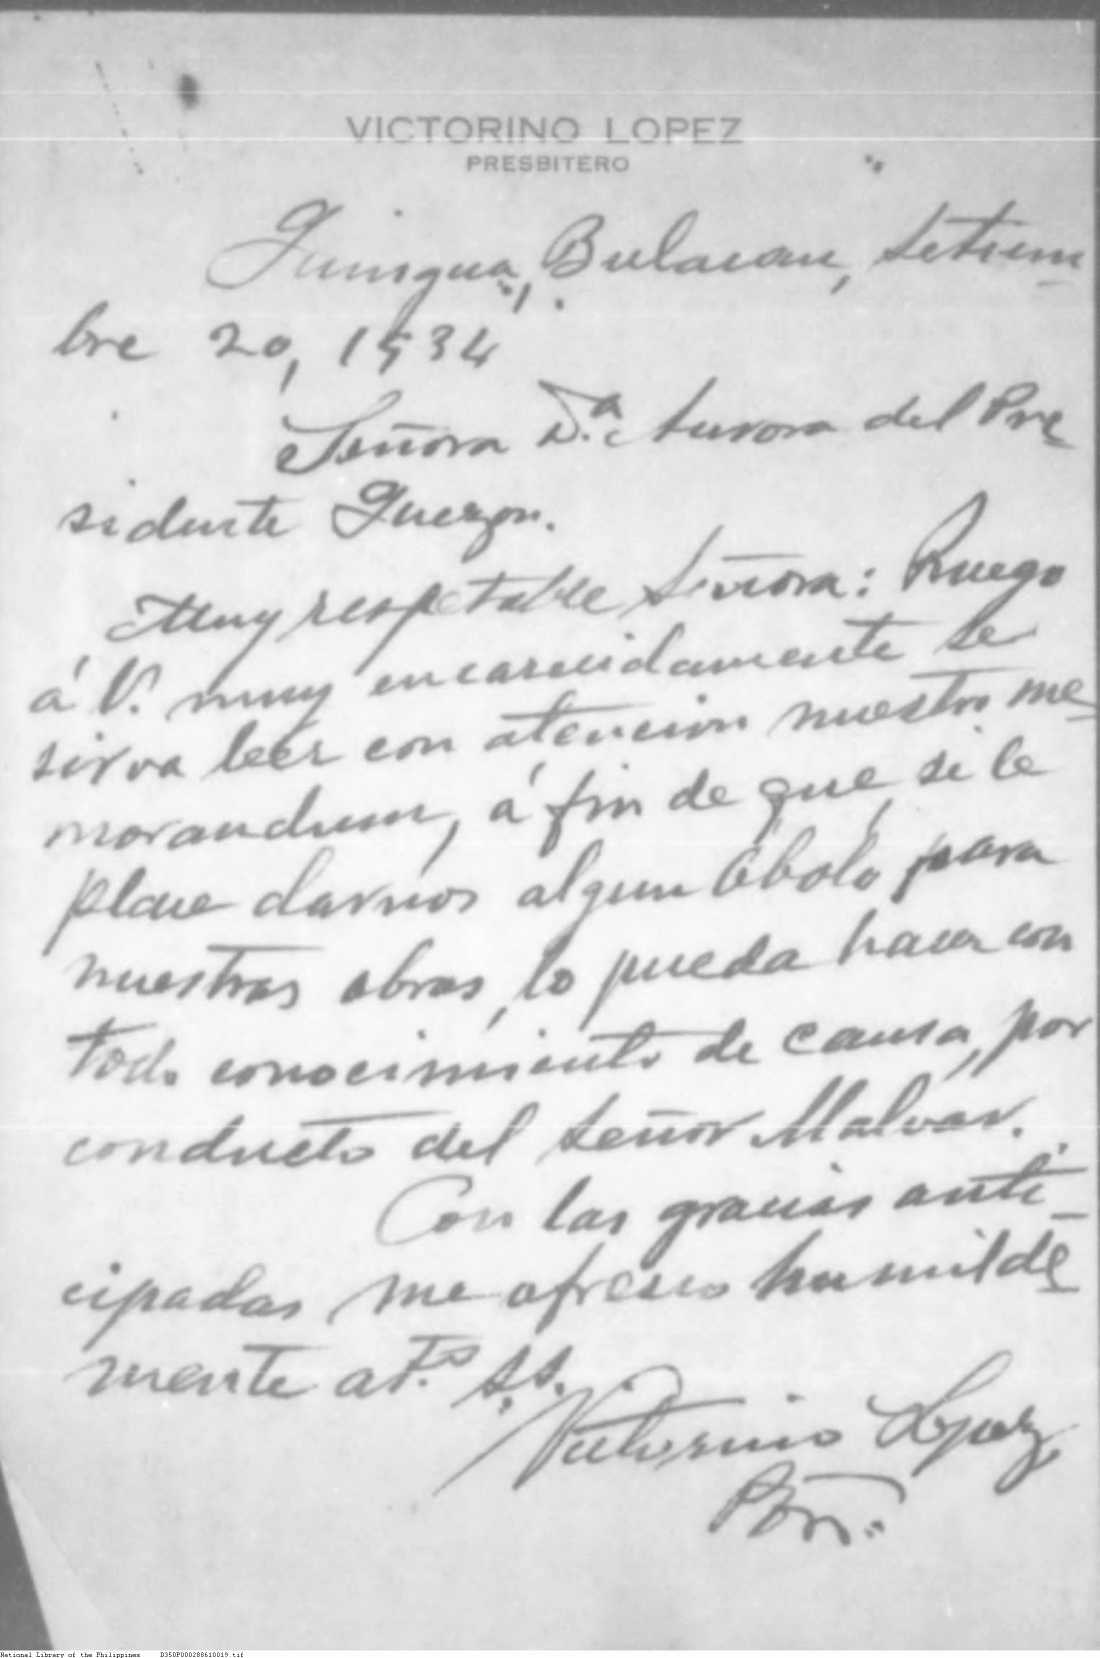 VICTORINO LOPEZ
PRESBITERO
Quingua, Bulacan, Setiem-
bre 20, 1934
Señora D.ª Aurora del Pre
sidente Quezon.
Muy respetable Señora: Ruego
á V. muy encarecidamente se
sirva leer con atencion nuestro me-
morandum, á fin de que, si le
place darnos algun óbolo para
nuestras obras, lo pueda hacer con
todo conocimiento de causa, por
conducto del Señor Malvar.
Con las gracias anti-
cipadas me ofresco humilde
mente at.º S.S.
Victorino Lopez
Pbro.
National Library of the Philippines D350P000288610019.tif